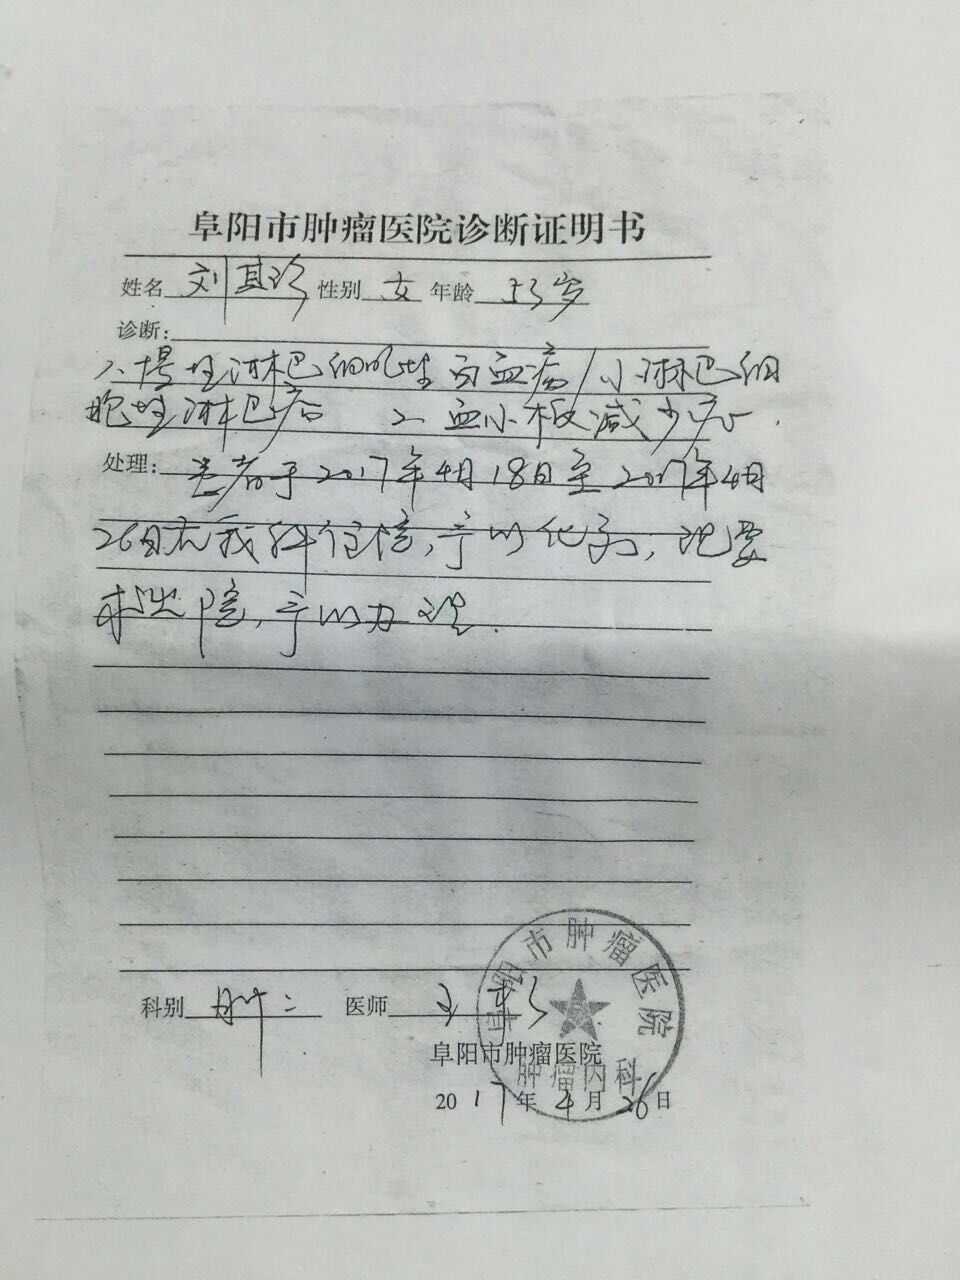 阜阳市肿瘤医院诊断证明书
姓名 刘其珍 性别 女 年龄 53岁
诊断:
1、慢性淋巴细胞性白血病/小淋巴细
胞性淋巴瘤 2、血小板减少症.
处理: 患者于2017年4月18日至2017年4月
26日在我科住院,予以化疗,现要
求出院,予以办理.
科别 肿二 医师 王
阜阳市肿瘤医院
2017年4月26日
阜阳市肿瘤医院
肿瘤内科